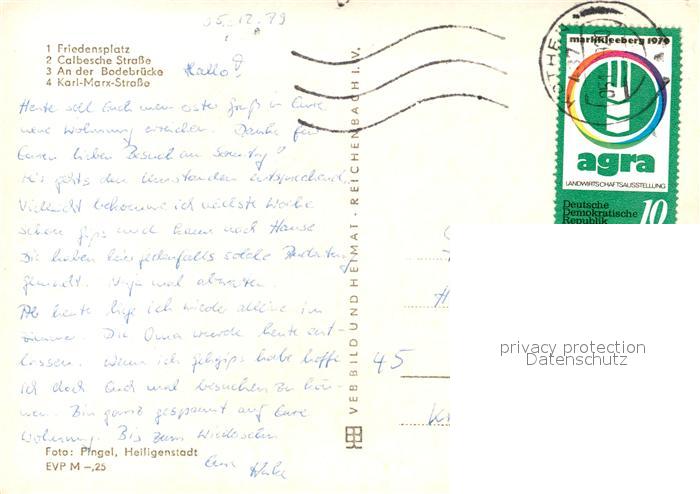 05.12.79
1 Friedensplatz
2 Calbesche Straße
3 An der Bodebrücke
4 Karl-Marx-Straße
Hallo!
Heute soll Euch mein erster Gruß in Eure
neue Wohnung erreichen. Danke für
Euren lieben Besuch am Sonntag!
Mir gehts den Umständen entsprechend.
Vielleicht bekomme ich nächste Woche
schon Gips und kann nach Hause
Die haben hier jedenfalls solche
gemacht. Naja mal abwarten.
Ab heute liege ich wieder alleine im
Zimmer. Die Oma wurde heute ent-
lassen. Wenn ich Gehgips habe hoffe
ich doch Euch mal besuchen zu kön-
nen. Bin ganz gespannt auf Eure
Wohnung. Bis zum Wiedersehn
Eure
Foto: Pingel, Heiligenstadt
EVP M –,25
VEB BILD UND HEIMAT · REICHENBACH I. V.
markkleeberg 1979
agra
LANDWIRTSCHAFTSAUSSTELLUNG
Deutsche
Demokratische
Republik
10
45
privacy protection
Datenschutz